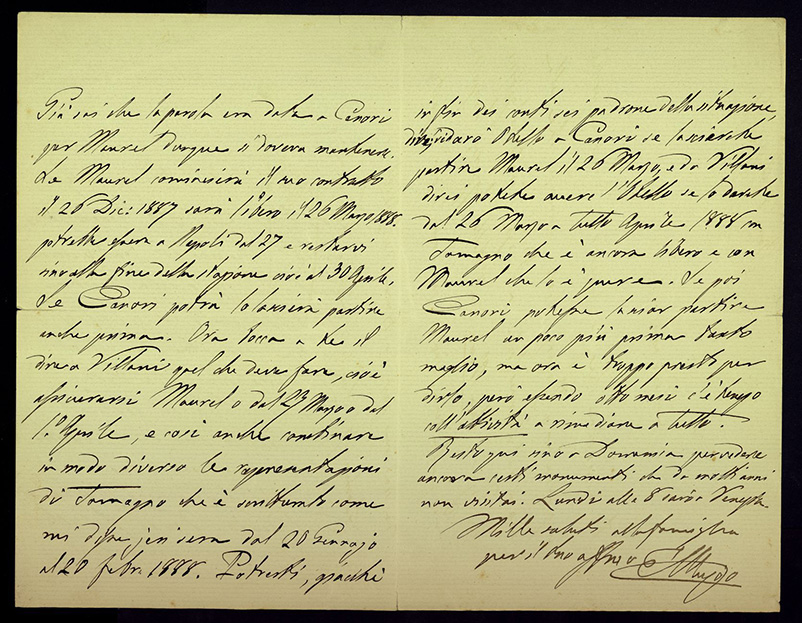 Già sai che la parola era data a Canori
per Maurel dunque si doveva mantenere.
Se Maurel comincierà il suo contratto
il 26 Dic: 1887 sarà libero il 26 Marzo 1888.
potrebbe essere a Napoli dal 27 e restarvi
sino alla fine della stagione cioè al 30 Aprile.
Se Canori potrà lo lascierà partire
anche prima. Ora tocca a te il
dire a Villani quel che deve fare, cioè
assicurarsi Maurel o dal 27 Marzo o dal
1.º Aprile, e così anche combinare
in modo diverso le rapresentazioni
di Tamagno che è scritturato come
mi disse jeri sera dal 20 Gennajo
al 20 febb. 1888. Potresti, giacchè
in fin dei conti sei padrone della situazione,
Otello a Canori se lascerà
partire Maurel il 26 Marzo, e da Villani
direi potrebbe avere l'Otello se lo darebbe
dal 26 Marzo a tutto Aprile 1888 con
Tamagno che è ancora libero e con
Maurel che lo è pure. Se poi
Canori potesse lasciar partire
Maurel un poco più prima tanto
meglio, ma ora è troppo presto per
dirlo, però essendo otto mesi c'è tempo
coll'attività a rimediare a tutto.
Resto qui sino a Domenica per vedere
ancora certi monumenti che da molti anni
non visitai. Lundì alle 8 sarò a Venezia.
Mille saluti alla famiglia
per il tuo affmo